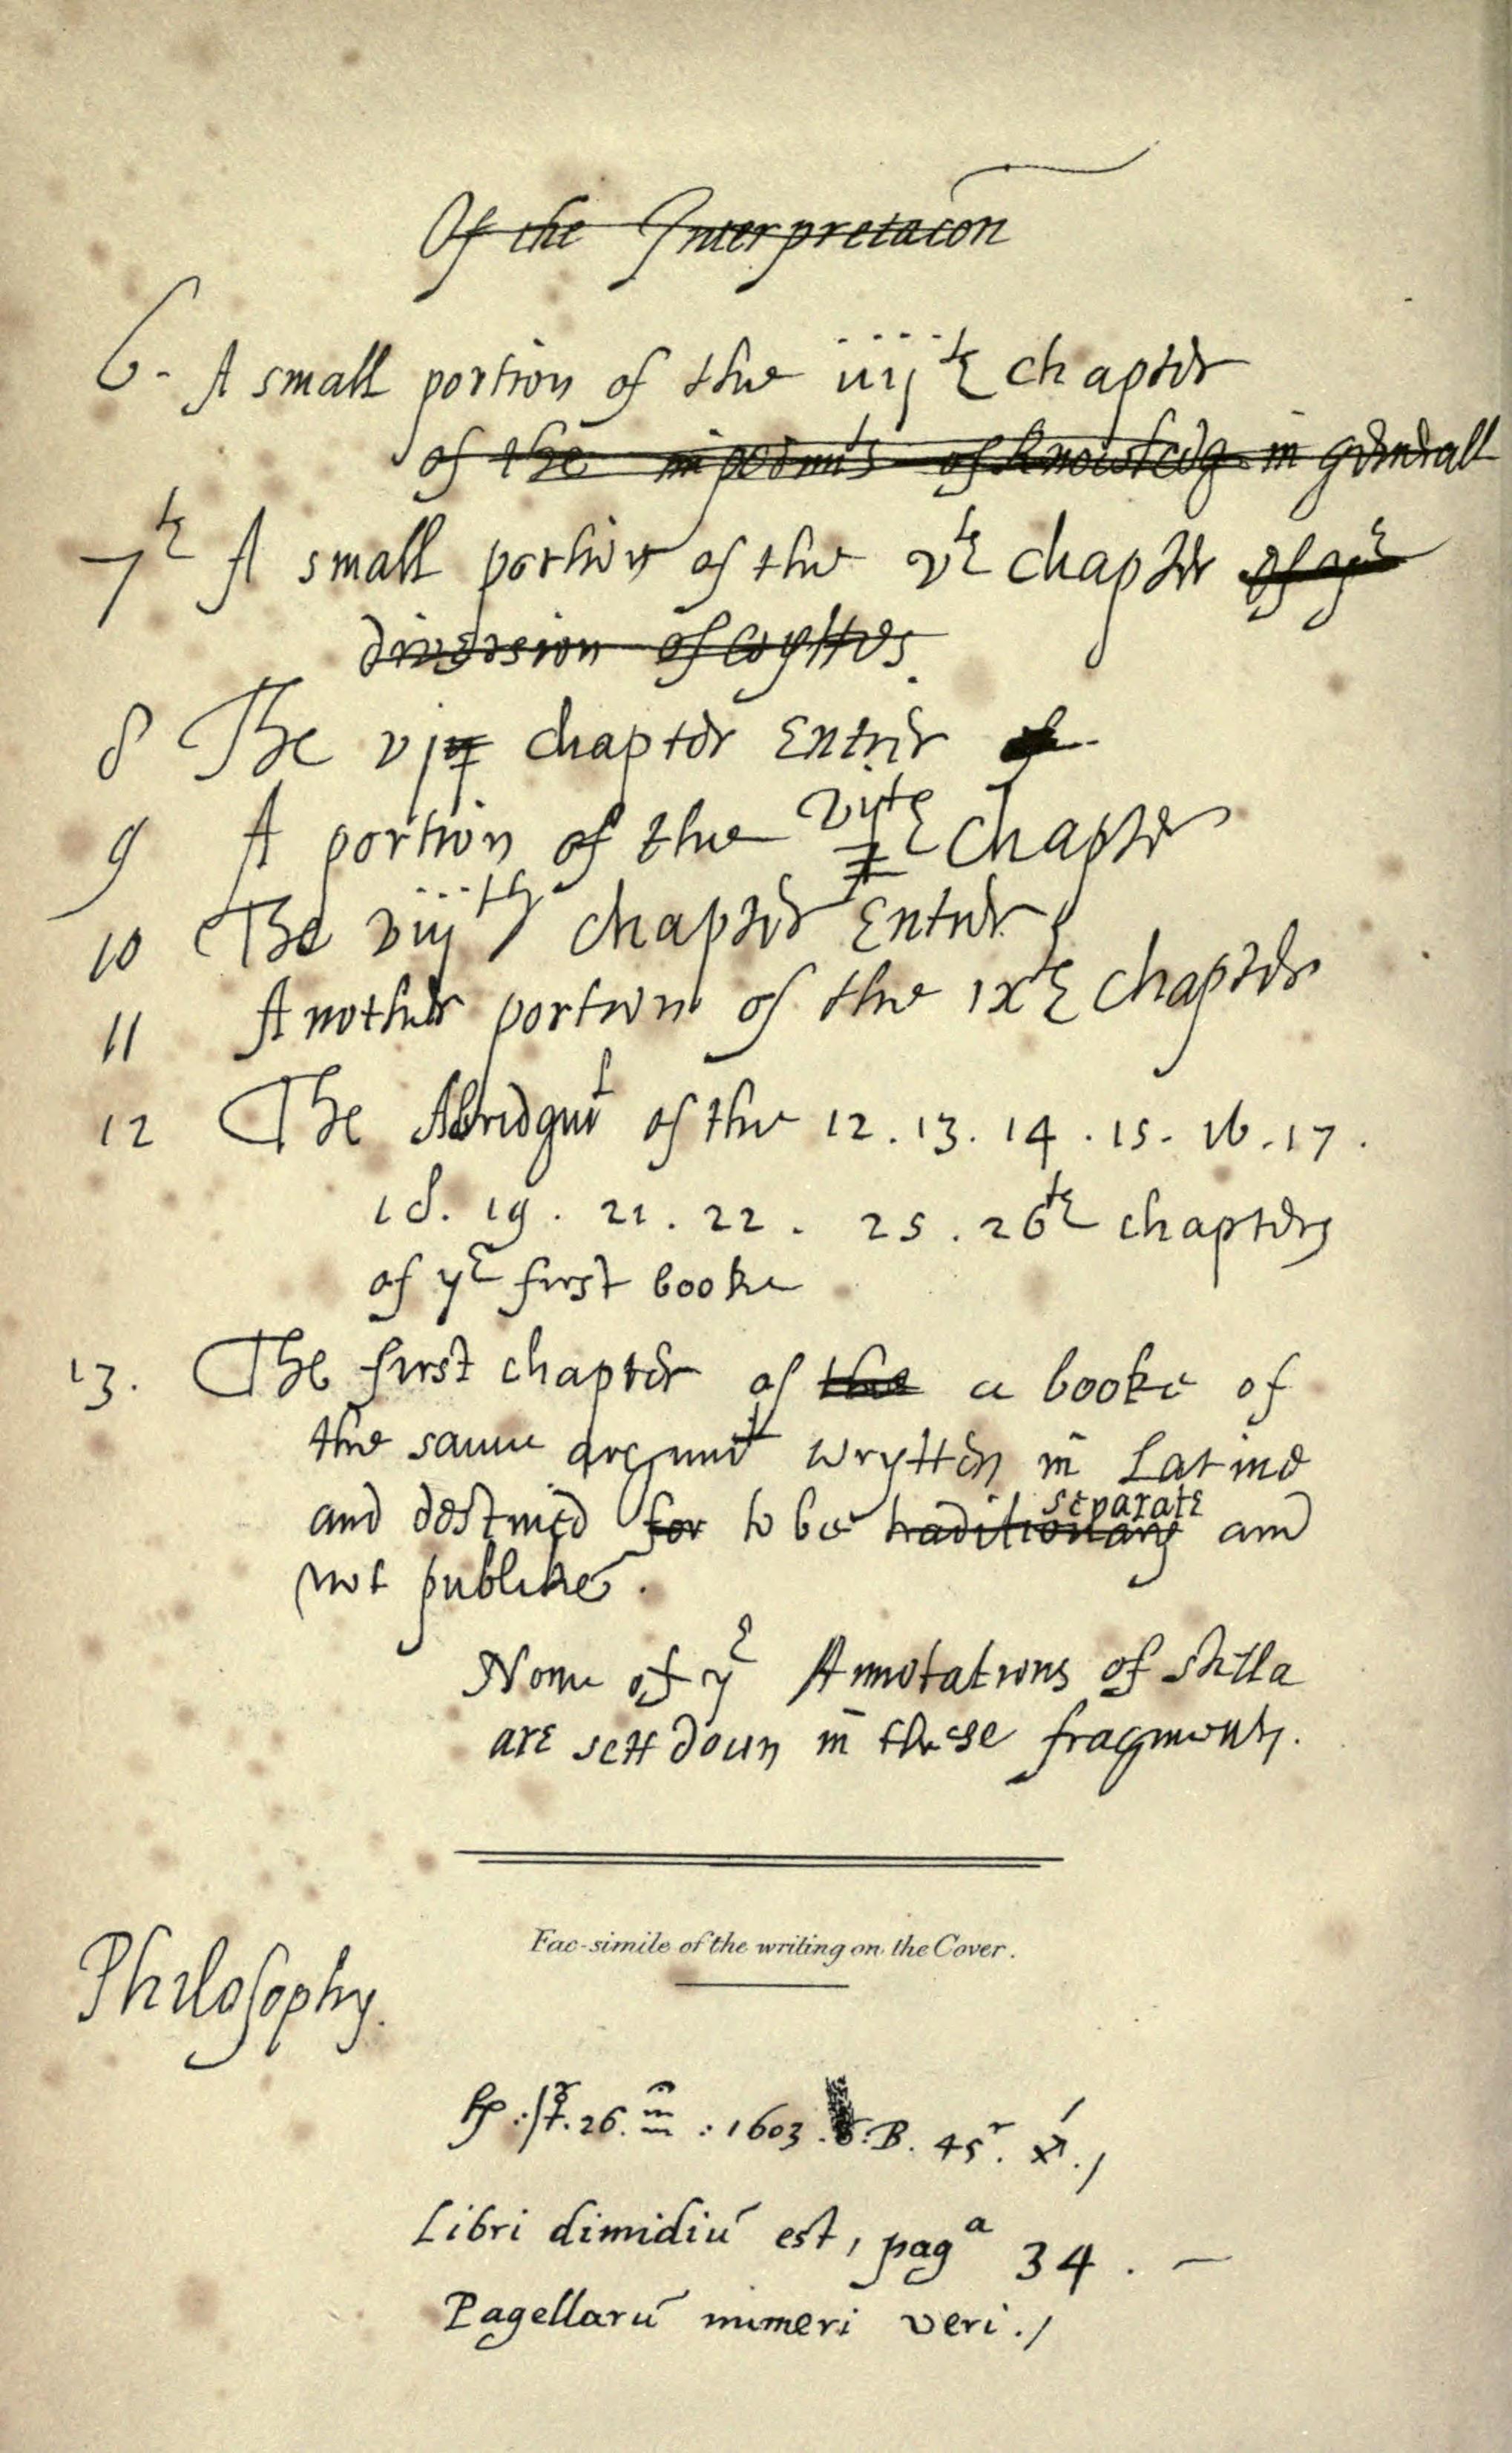 Of the Interpretacōn
6- A small portion of the iiijth chapter
of the impedimts of knowledg in generall
7th A small portion of the vth chapter of ye
diversion of wyttes.
8 The vj chapter Entier
9 A portion of the vijth chapter
10 The viijth chapter Entier
11 Another portion of the ixth chapter
12 The Abridgmt of the 12. 13. 14. 15. 16. 17.
18. 19. 21. 22. 25. 26th chapters
of ye first booke
13. The first chapter of the a booke of
the same argumt wrytten in Latine
and destined for to be traditionary separate and
not publike.
None of ye Annotations of Stella
are sett doun in these fragments.
Fac-simile of the writing on the Cover.
Philosophy.
26. : 1603. B. 45r.
Libri dimidiú est, paga 34. —
Pagellarú numeri veri./